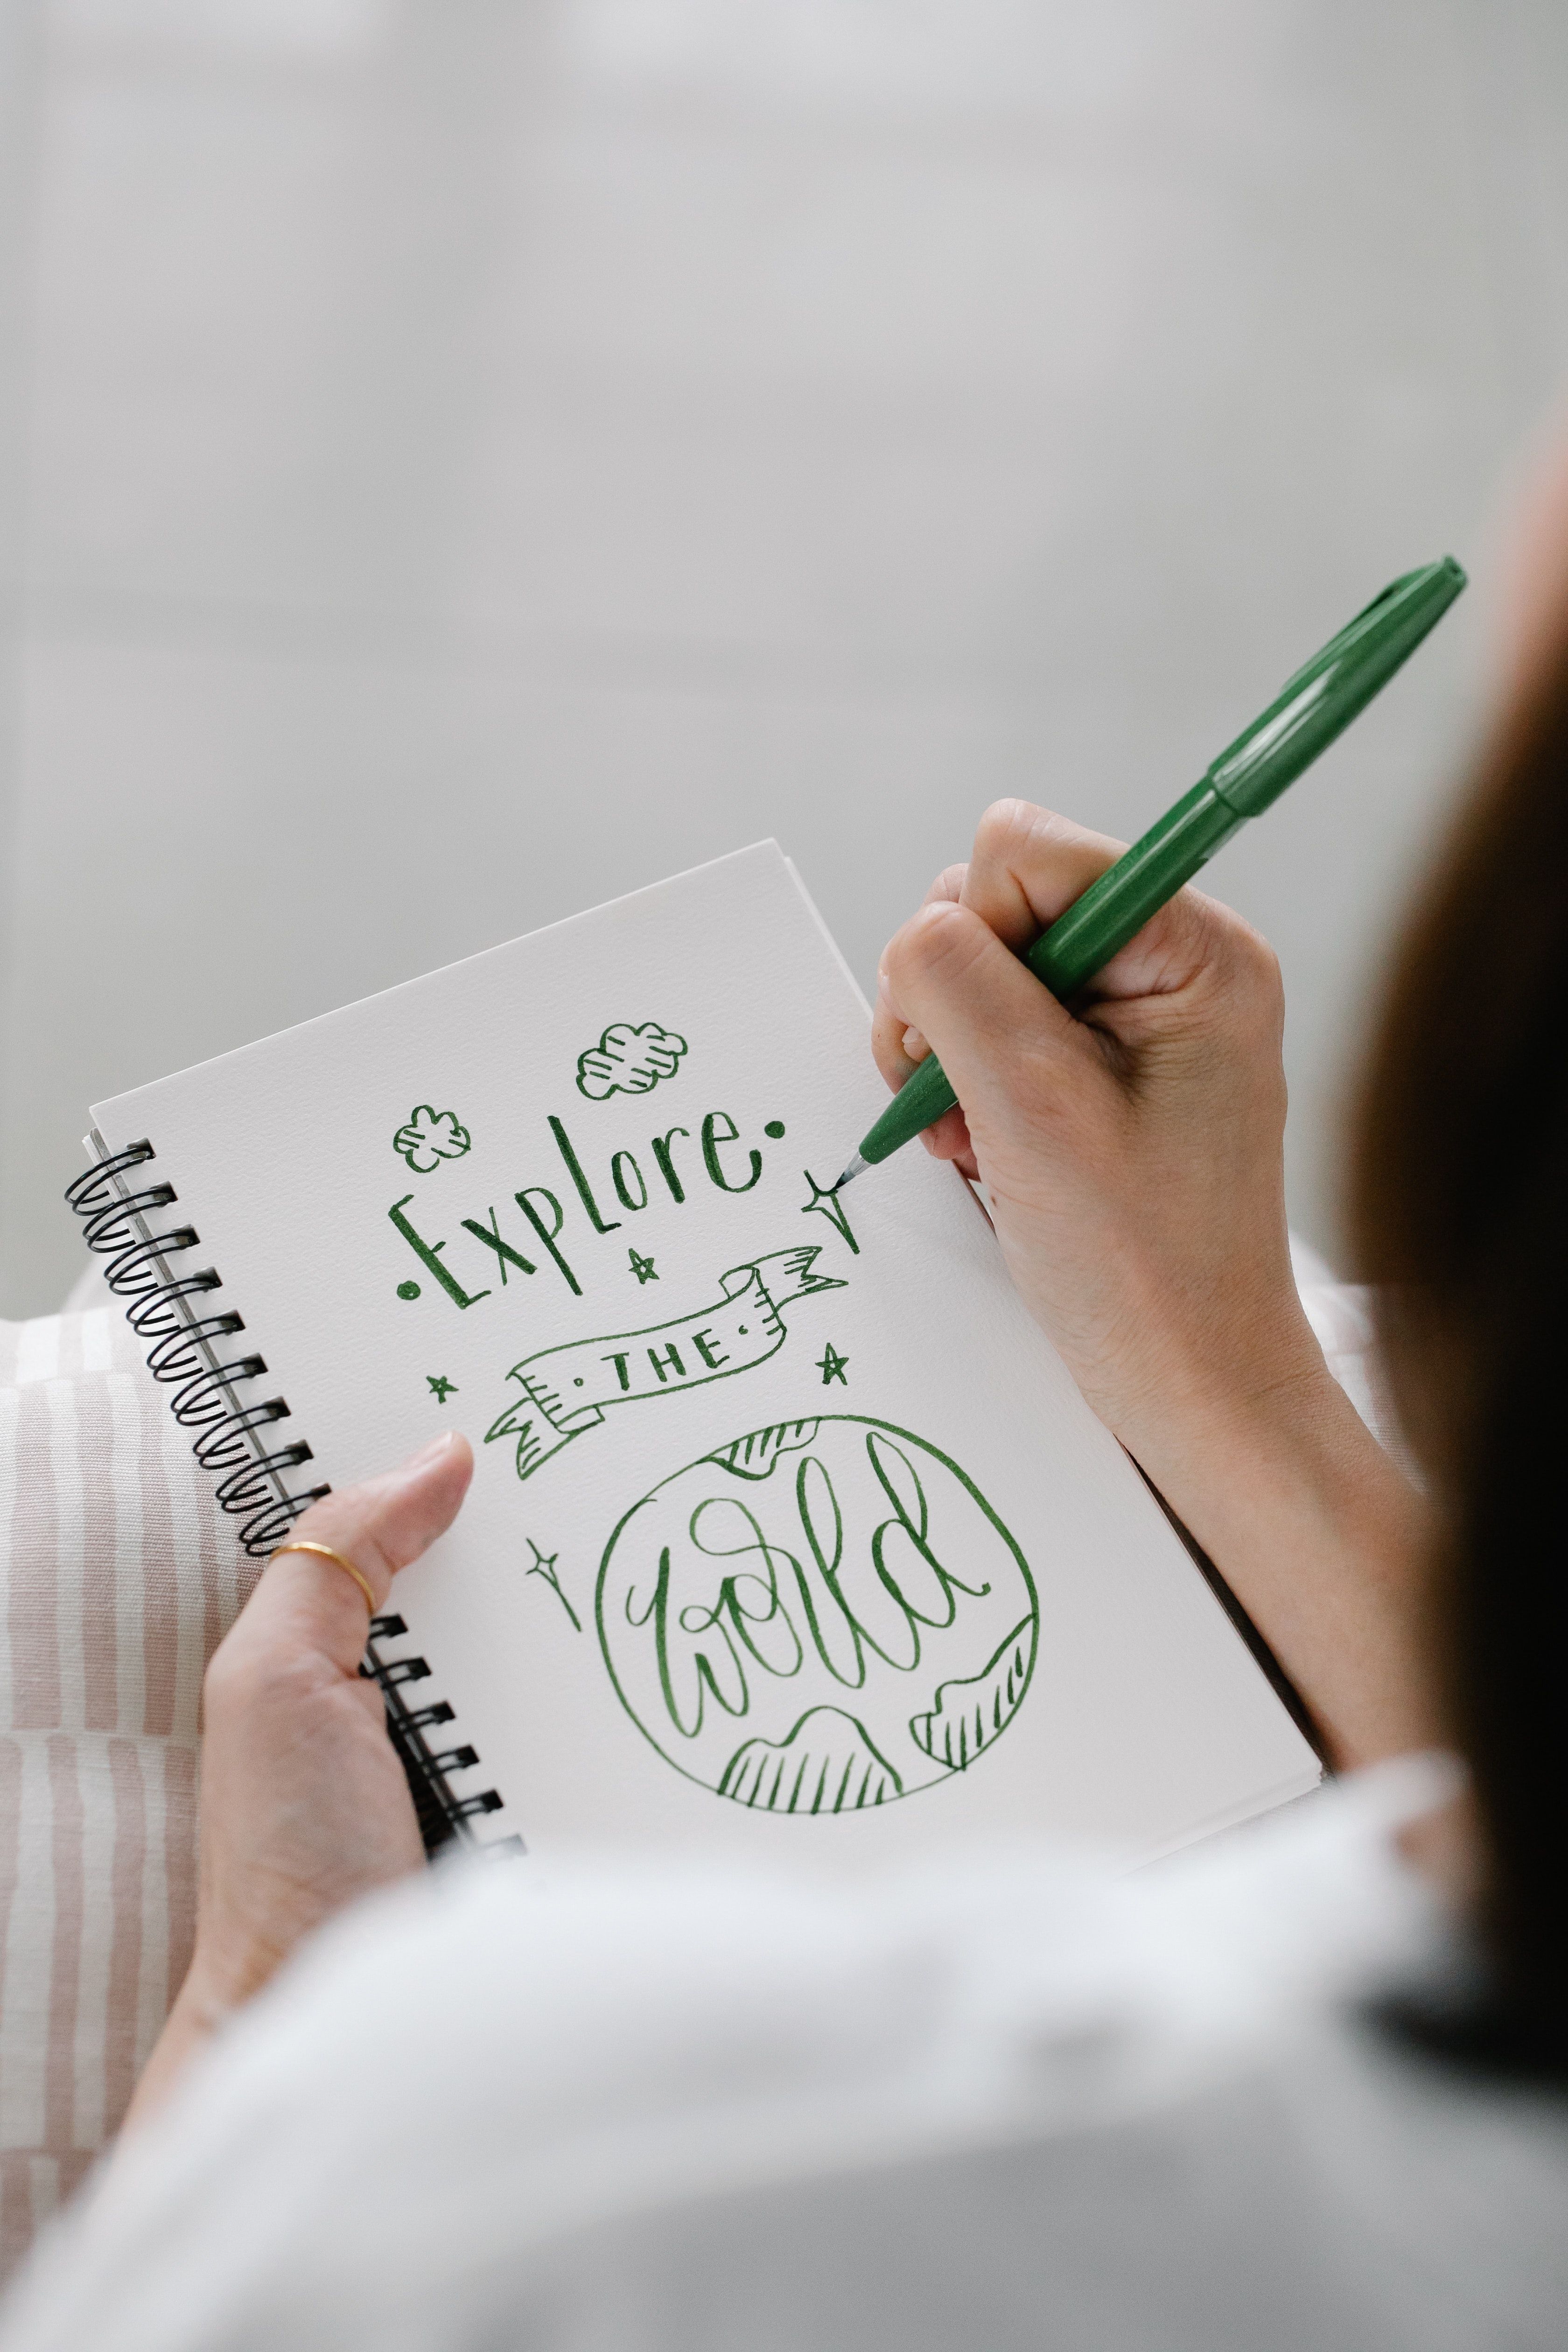 Explore
THE
World